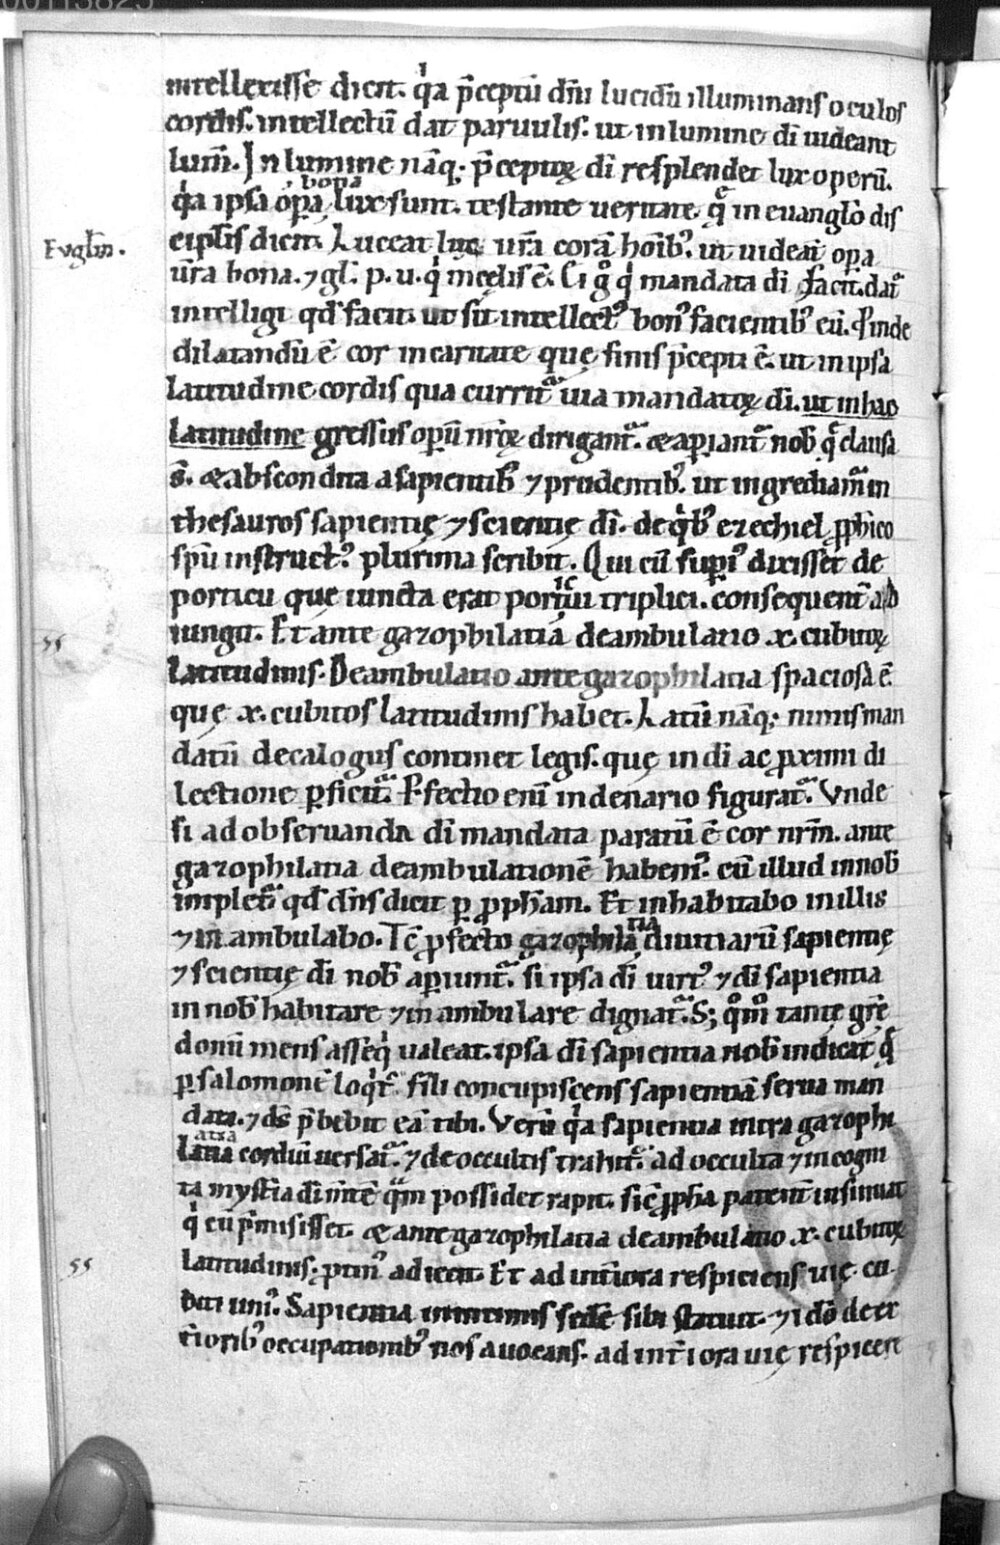 00113825
intellexisse dicit. qͥa p̄ceptū dn̄i lucidū illuminans oculos
cordis. intellectū dat paruulis. ut in lumine dī uideant
lum̄. In lumine nāq; p̄ceptoꝝ dī resplendet lux operū.
bona
qͥa ipsa op̄a lux sunt. testante ueritate. q̄ in euangl̄o dis
Evgl̄m.
cipl̄is dicit. Luceat lux ur̄a corā hoīb᷒. ut uideāt opa
ur̄a bona. ⁊ gl̄. p. u. qͥ in cęlis ē. Ci gͦ qͥ mandata dī facit. dat᷑
intelligi qd̄ facit. ut sit intellect᷒ bon᷒ facientib᷒ eū. Proinde
dilatandū ē cor in caritate quę finis p̄cepti ē. ut in ipsa
latitudine cordis qua currit᷑ uia mandatoꝝ dī. ut in hac
latitudine gressus opū nr̄oꝝ dirigant᷑. & apiant᷑ nob̄ q̄ clausa
s̄. & abscondita a sapientib᷒ ⁊ prudentib᷒. ut ingrediam᷑ in
thesauros sapientię ⁊ scientię dī. de qͥb᷒ ezechiel ꝓph̄ico
spū instruct᷒ plurima scribit. Qui cū supi᷒ dixisset de
porticu quę iuncta erat porticui triplici. consequent̄ ad
iungit. Et ante gazophilatiā deambulatio .x. cubitoꝝ
latitudinis. Deambulatio ante gazophilatia spaciosa ē
quę .x. cubitos latitudinis habet. Latū nāq; nimis man
datū decalogus continet legis. que in dī ac ꝓximi di
lectione ꝑficit᷑. Perfectio enī in denario figurat᷑. Vnde
si ad obseruanda dī mandata paratū ē cor nr̄m. ante
gazophilatia deambulationē habem᷒. cū illud in nob̄
implet᷑ qd̄ dn̄s dicit ꝑ ꝓph̄am. Et inhabitabo in illis
⁊ inambulabo. Tc̄ ꝓfecto gazophila diuitiarū sapientię
tia
⁊ scientię dī nob̄ apiunt᷑. si ipsa dī uirt᷒ ⁊ dī sapientia
in nob̄ habitare ⁊ inambulare dignat᷑. S; qͦm̄ tantę grē
donū mens asseqͥ ualeat. ipsa dī sapientia nob̄ indicat q̄
ꝑ salomonē loqͥt᷑. fili concupiscens sapientiā serua man
data. ⁊ ds̄ p̄bebit eā tibi. Verū qͥa sapientia intra gazophi
latia cordiū uersat᷑. ⁊ de occultis trahit᷑ ad occulta ⁊ incogni
ta myst̄ia dī mentē qͣm possidet rapit. sic̄ ꝓph̄a patent̄ insinuat
qͥ cū p̄misisset. & ante gazophilatia deambulatio .x. cubitoꝝ
latitudinis. ꝓtin᷒ adiecit. Et ad int̄iora respiciens uię cu
biti uni᷒. Sapientia in intimis sedē sibi statuit. ⁊ idō de ex
t̄iorib᷒ occupationib᷒ nos auocans. ad int̄iora uię respicere